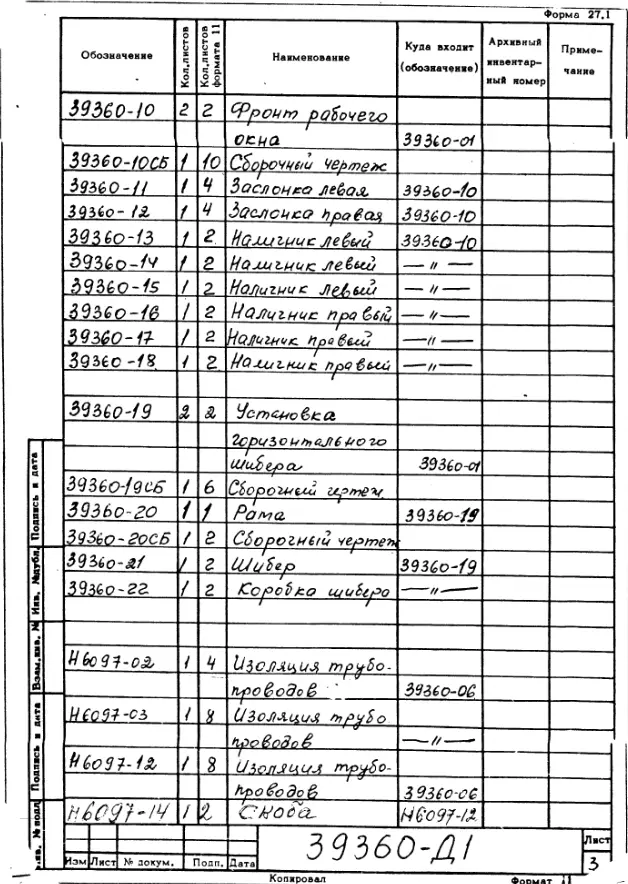 Форма 27.1
Обозначение Кол.листов Кол.листов формата 11 Наименование Куда входит (обозначение) Архивный инвентарный номер Примечание
39360-10 2 2 Фронт рабочего
окна 39360-01
39360-10СБ 1 10 Сборочный чертеж
39360-11 1 4 Заслонка левая 39360-10
39360-12 1 4 Заслонка правая 39360-10
39360-13 1 2 Наличник левый 39360-10
39360-14 1 2 Наличник левый —〃 —
39360-15 1 2 Наличник левый — 〃 —
39360-16 1 2 Наличник правый — 〃 —
39360-17 1 2 Наличник правый — 〃 —
39360-18 1 2 Наличник правый — 〃 —
39360-19 2 2 Установка
горизонтального
шибера 39360-01
39360-19СБ 1 6 Сборочный чертеж
39360-20 1 1 Рама 39360-19
39360-20СБ 1 2 Сборочный чертеж
39360-21 1 2 Шибер 39360-19
39360-22 1 2 Коробка шибера — 〃 —
Н6097-02 1 4 Изоляция трубо-
проводов 39360-06
Н6097-03 1 8 Изоляция трубо
проводов — 〃 —
Н6097-12 1 8 Изоляция трубо-
проводов 39360-06
Н6097-14 1 2 Скоба Н6097-12
Подпись и дата
Инв. №дубл.
Взам.инв. №
Подпись и дата
Инв. №подл
Изм Лист № докум. Подп. Дата
39360-Д1
Лист
3
Копировал
Формат 11